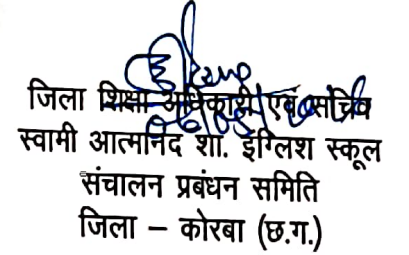 जिला शिक्षा अधिकारी एवं सचिव
स्वामी आत्मानंद शा. इंग्लिश स्कूल
संचालन प्रबंधन समिति
जिला – कोरबा (छ.ग.)